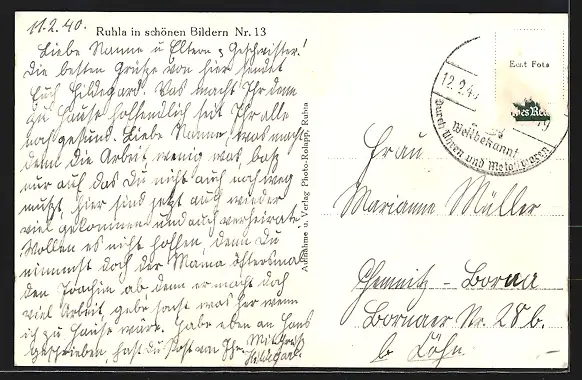 11.2.40.
Ruhla in schönen Bildern Nr. 13
Liebe Nanne u Eltern u Geschwister!
Die besten Grüße von hier sendet
Euch Hildegard. Was macht Ihr denn
zu Hause hoffendlich seit Ihr alle
noch gesund. Liebe Nanne, was macht
denn die Arbeit, wenig was
nur auf das Du nicht auch noch weg
mußt, hier sind jetzt auch wieder
viel gekommen und auch verheirate.
Wollen es nicht hoffen, denn Du
nimmst doch der Mama öftersmal
den Joachim ab, denn er macht doch
viel Arbeit, gebe sacht was her wenn
ich zu Hause wäre. Habe eben an Hans
geschrieben, hast du Post von Ihm.
Mit Gruß
Hildegard.
Aufnahme u. Verlag Photo-Rohapp, Ruhla
Echt Foto
12.2.40
Weltbekannt
Durch Uhren und Metallwaren
Frau
Marianne Müller
Chemnitz - Borna
Bornaer Str. 28 b.
b